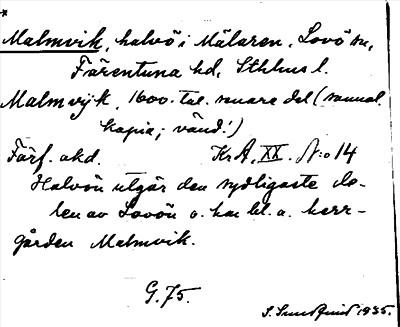 *
Malmvik, halvö i Mälaren, Lovö sn,
Färentuna hd, Sthlms l.
Malmvijk, 1600-tal. senare del (
kopia; vänd!)
Förf. okd. KrA, XX. N:o 14
Halvön utgör den sydligaste de-
len av Lovön o. har bl. a. herr-
gården Malmvik.
G. 75.
S. Sundquist 1935.